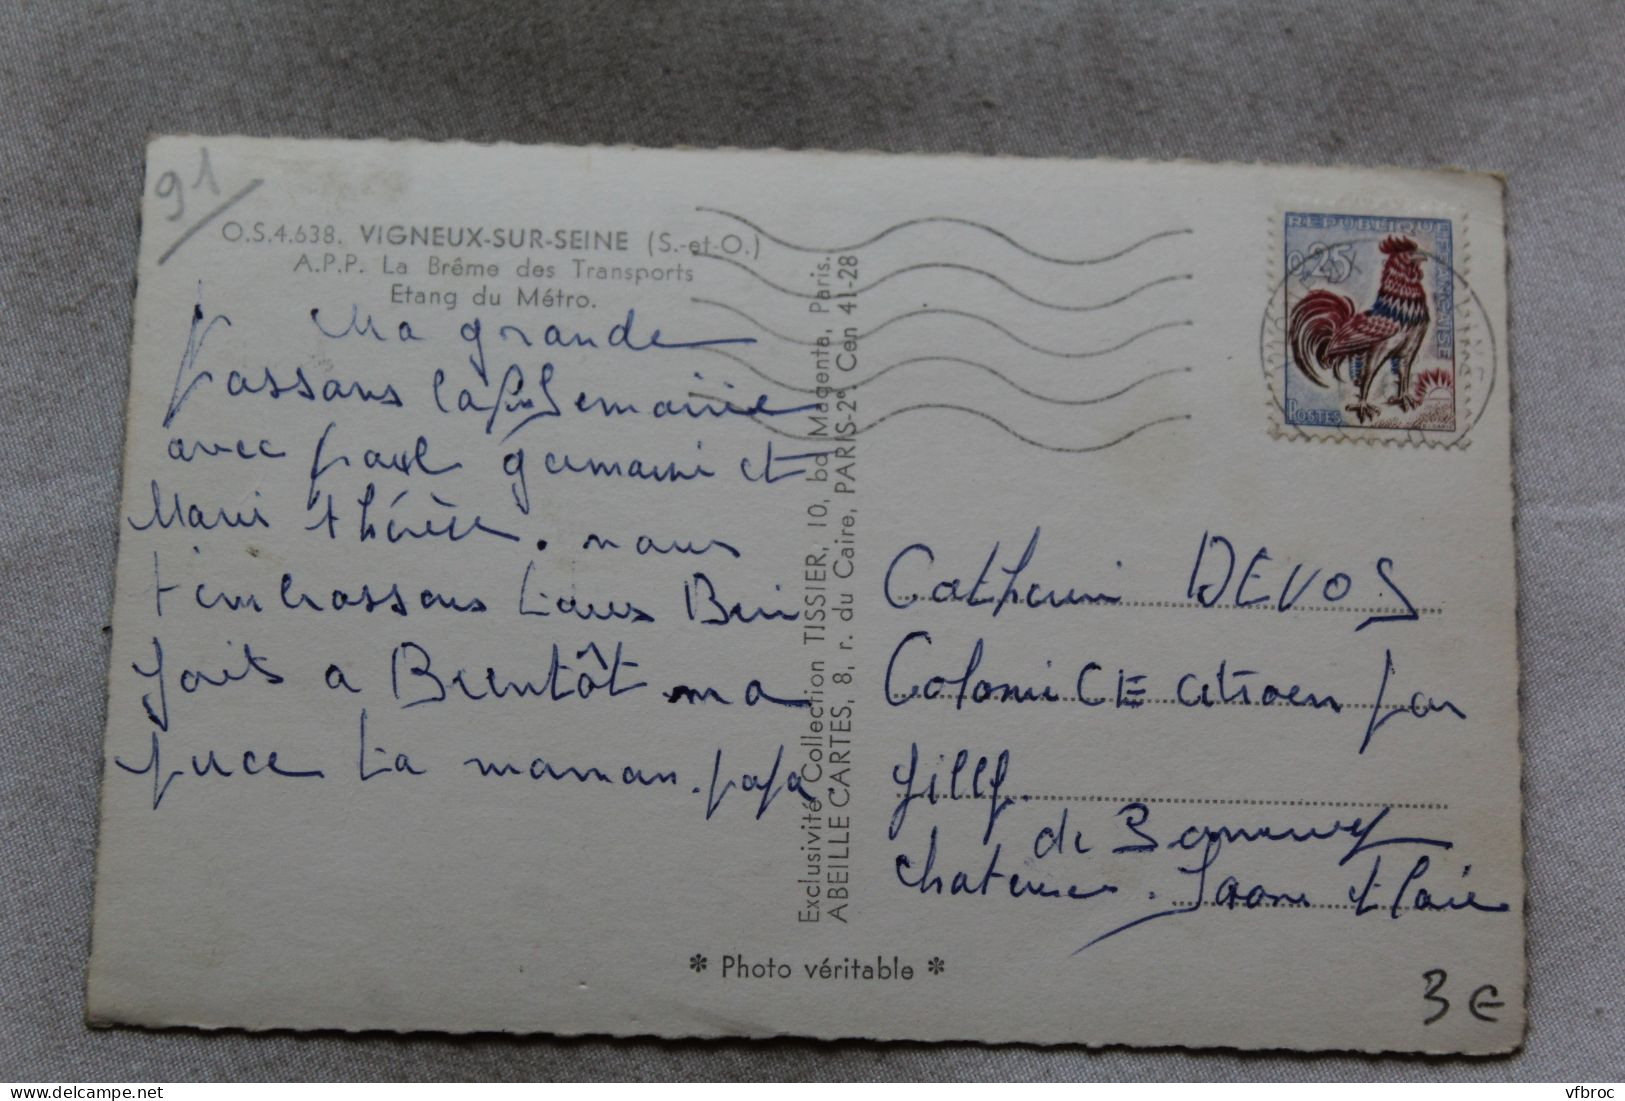 91
O.S.4.638. VIGNEUX-SUR-SEINE (S.-et-O.)
A.P.P. La Brême des Transports
Etang du Métro.
Ma grande
passons la semaine
avec paul germaine et
Marie thérèse. nous
t'embrassons tous Bien
fort a Bientôt ma
puce ta maman. papa
Exclusivité Collection TISSIER, 10, bd Magenta, Paris.
ABEILLE CARTES, 8, r. du Caire, PARIS-2e. Cen 41-28
REPUBLIQUE FRANÇAISE
0,25
POSTES
Catherine DEVOS
Colonie CE citroen par
Gilly
de
chateau. Saone et Loire
* Photo véritable *
3 €
vfbroc